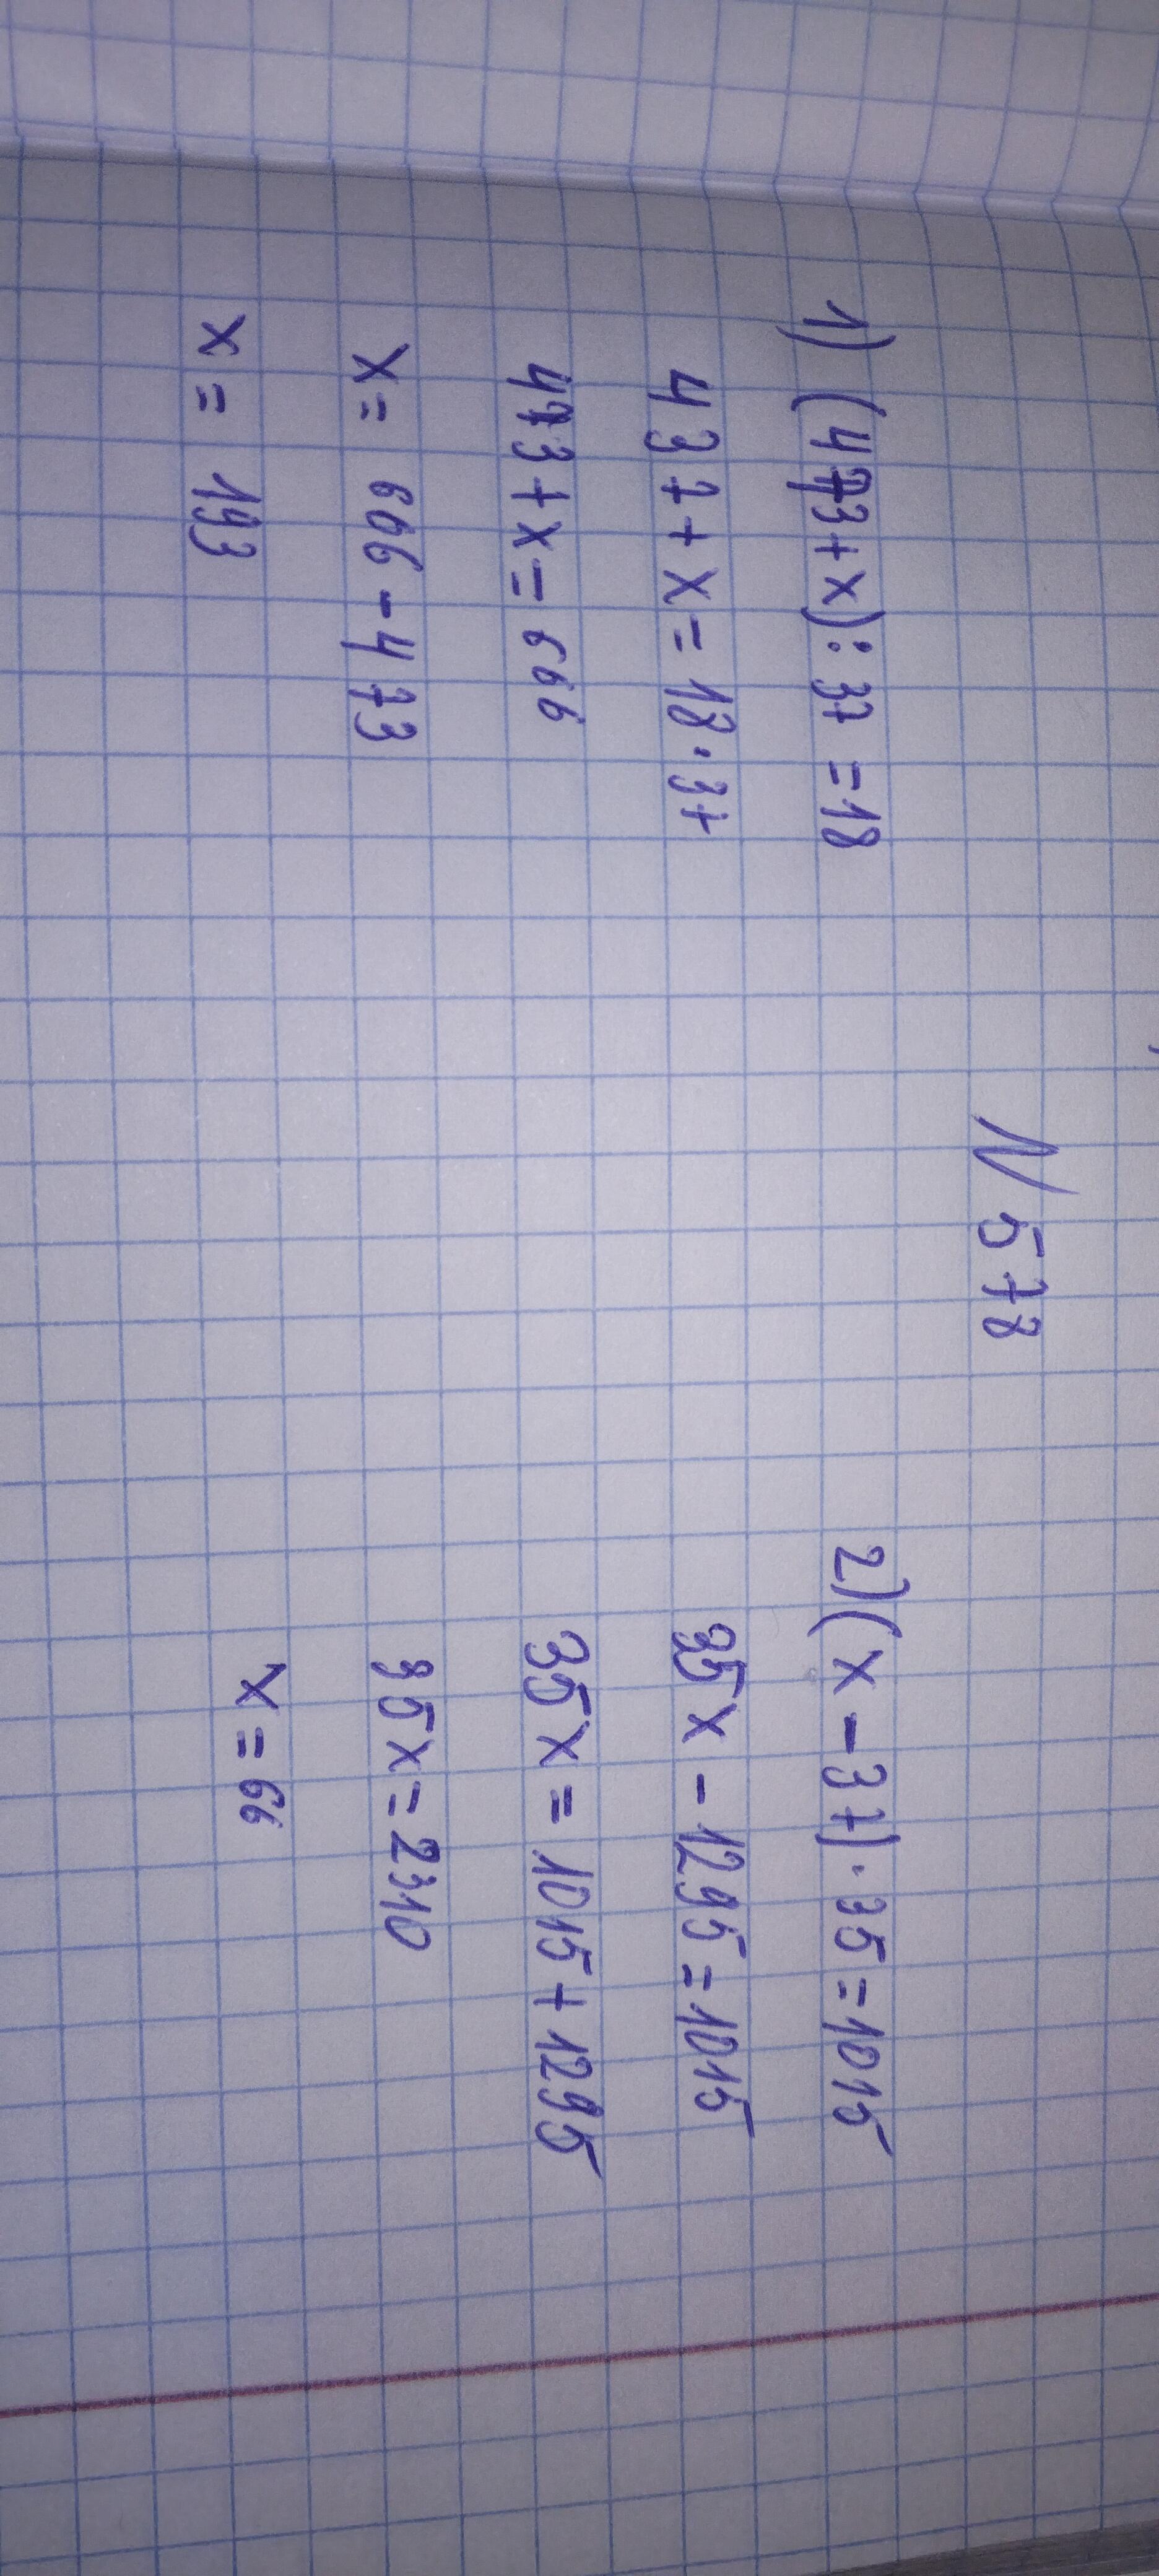 N 578
1) (473 + x) : 37 = 18
437 + x = 18 · 37
473 + x = 666
x = 666 - 473
x = 193
2) (x - 37) · 35 = 1015
35x - 1295 = 1015
35x = 1015 + 1295
35x = 2310
x = 66